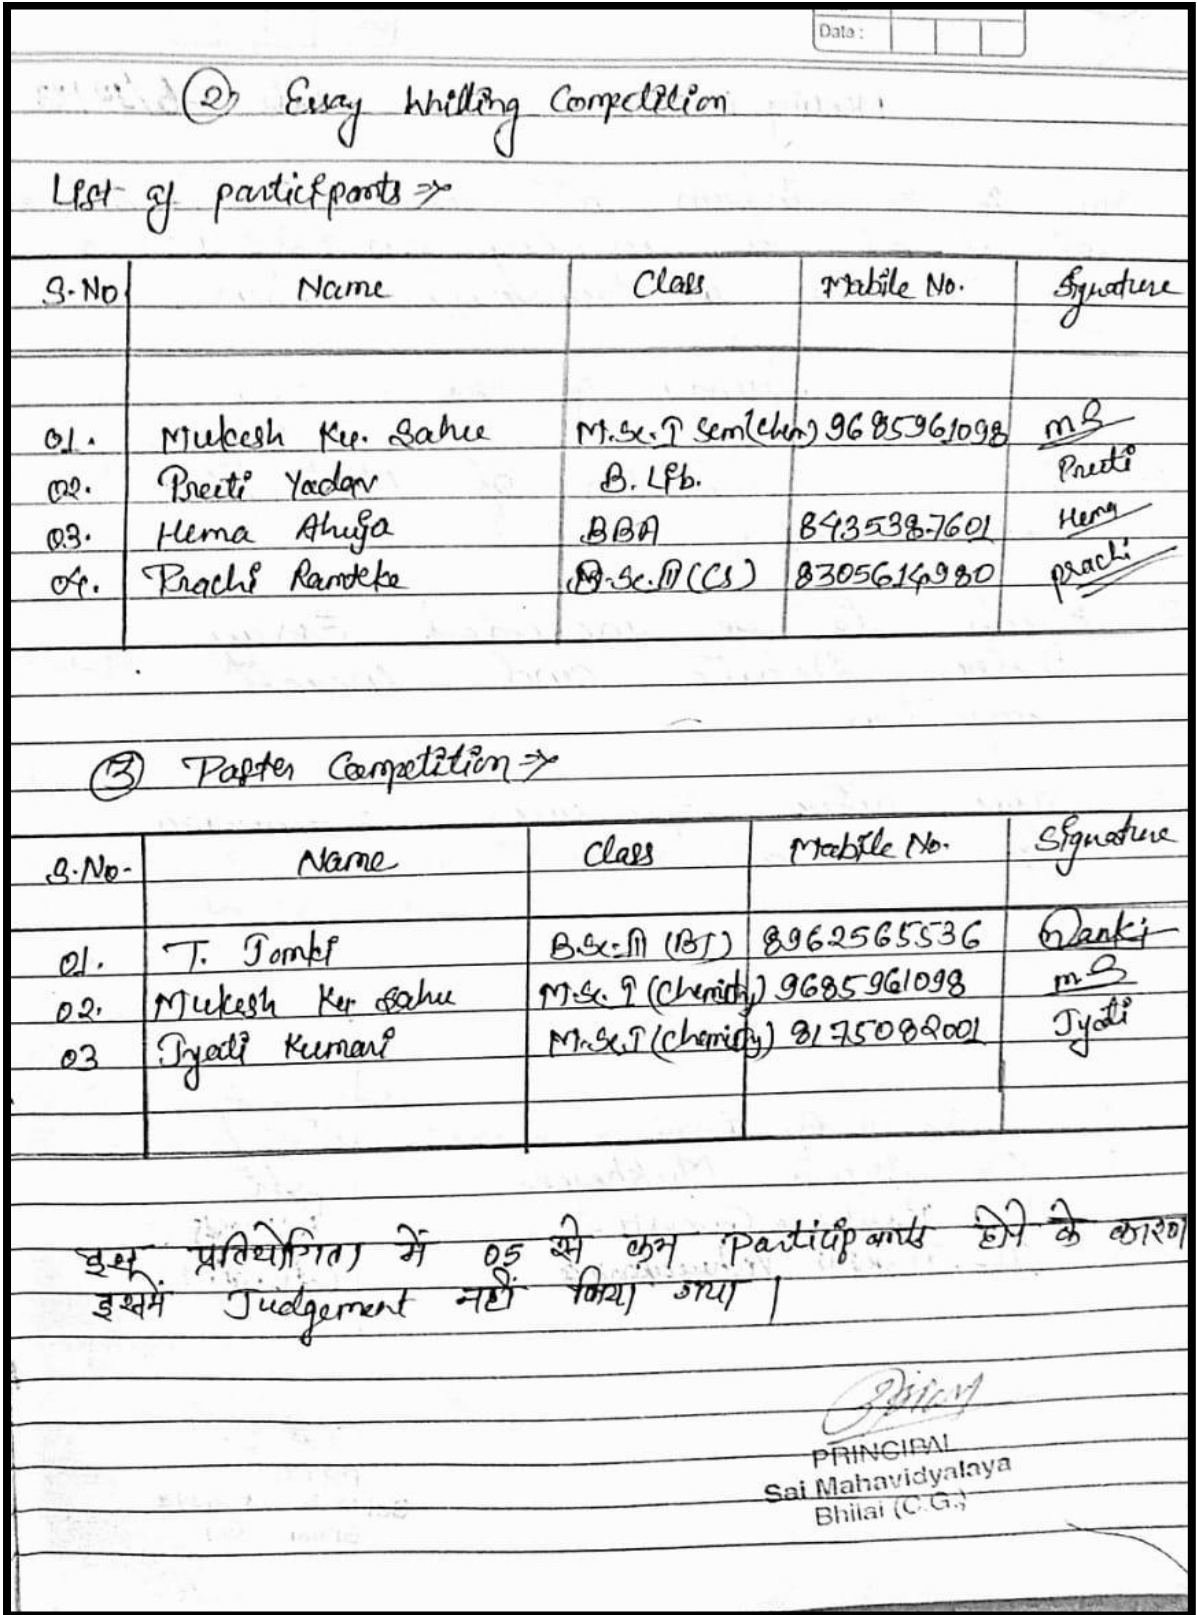 Date :
② Essay Whilling Competition
List of participants ⇒
S.No Name Class Mobile No. Signature
01. Mukesh Kr. Sahu M.Sc. I Sem (Chem) 9685961098 MS
02. Preeti Yadav B. Lib. Preeti
03. Hema Ahuja BBA 8435387601 Hema
04. Prachi Ramteke M.Sc. III (CS) 8305614980 prachi
③ Poster Competition ⇒
S.No. Name Class Mobile No. Signature
01. T. Jomki B.Sc. III (BT) 8962565536
02. Mukesh Kr Sahu M.Sc. I (Chemistry) 9685961098 MS
03 Jyoti Kumari M.Sc. I (Chemistry) 8175082001 Jyoti
इस प्रतियोगिता में 05 से कम Participants होने के कारण
इसमें Judgement नहीं किया गया |
PRINCIPAL
Sai Mahavidyalaya
Bhilai (C.G.)